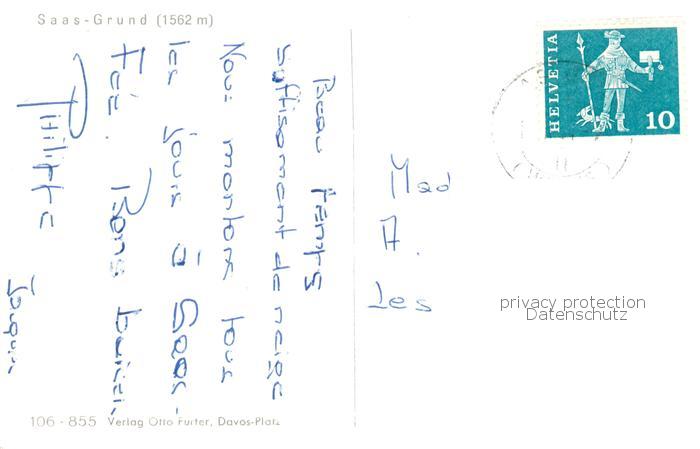 Saas-Grund (1562 m)
Beau temps
suffisament de neige
Nous montons tous
les jours à Saas-
Fée. Bons baisers
Philippe
HELVETIA
10
Mad
A.
Les
privacy protection
Datenschutz
106 - 855 Verlag Otto Furter, Davos-Platz